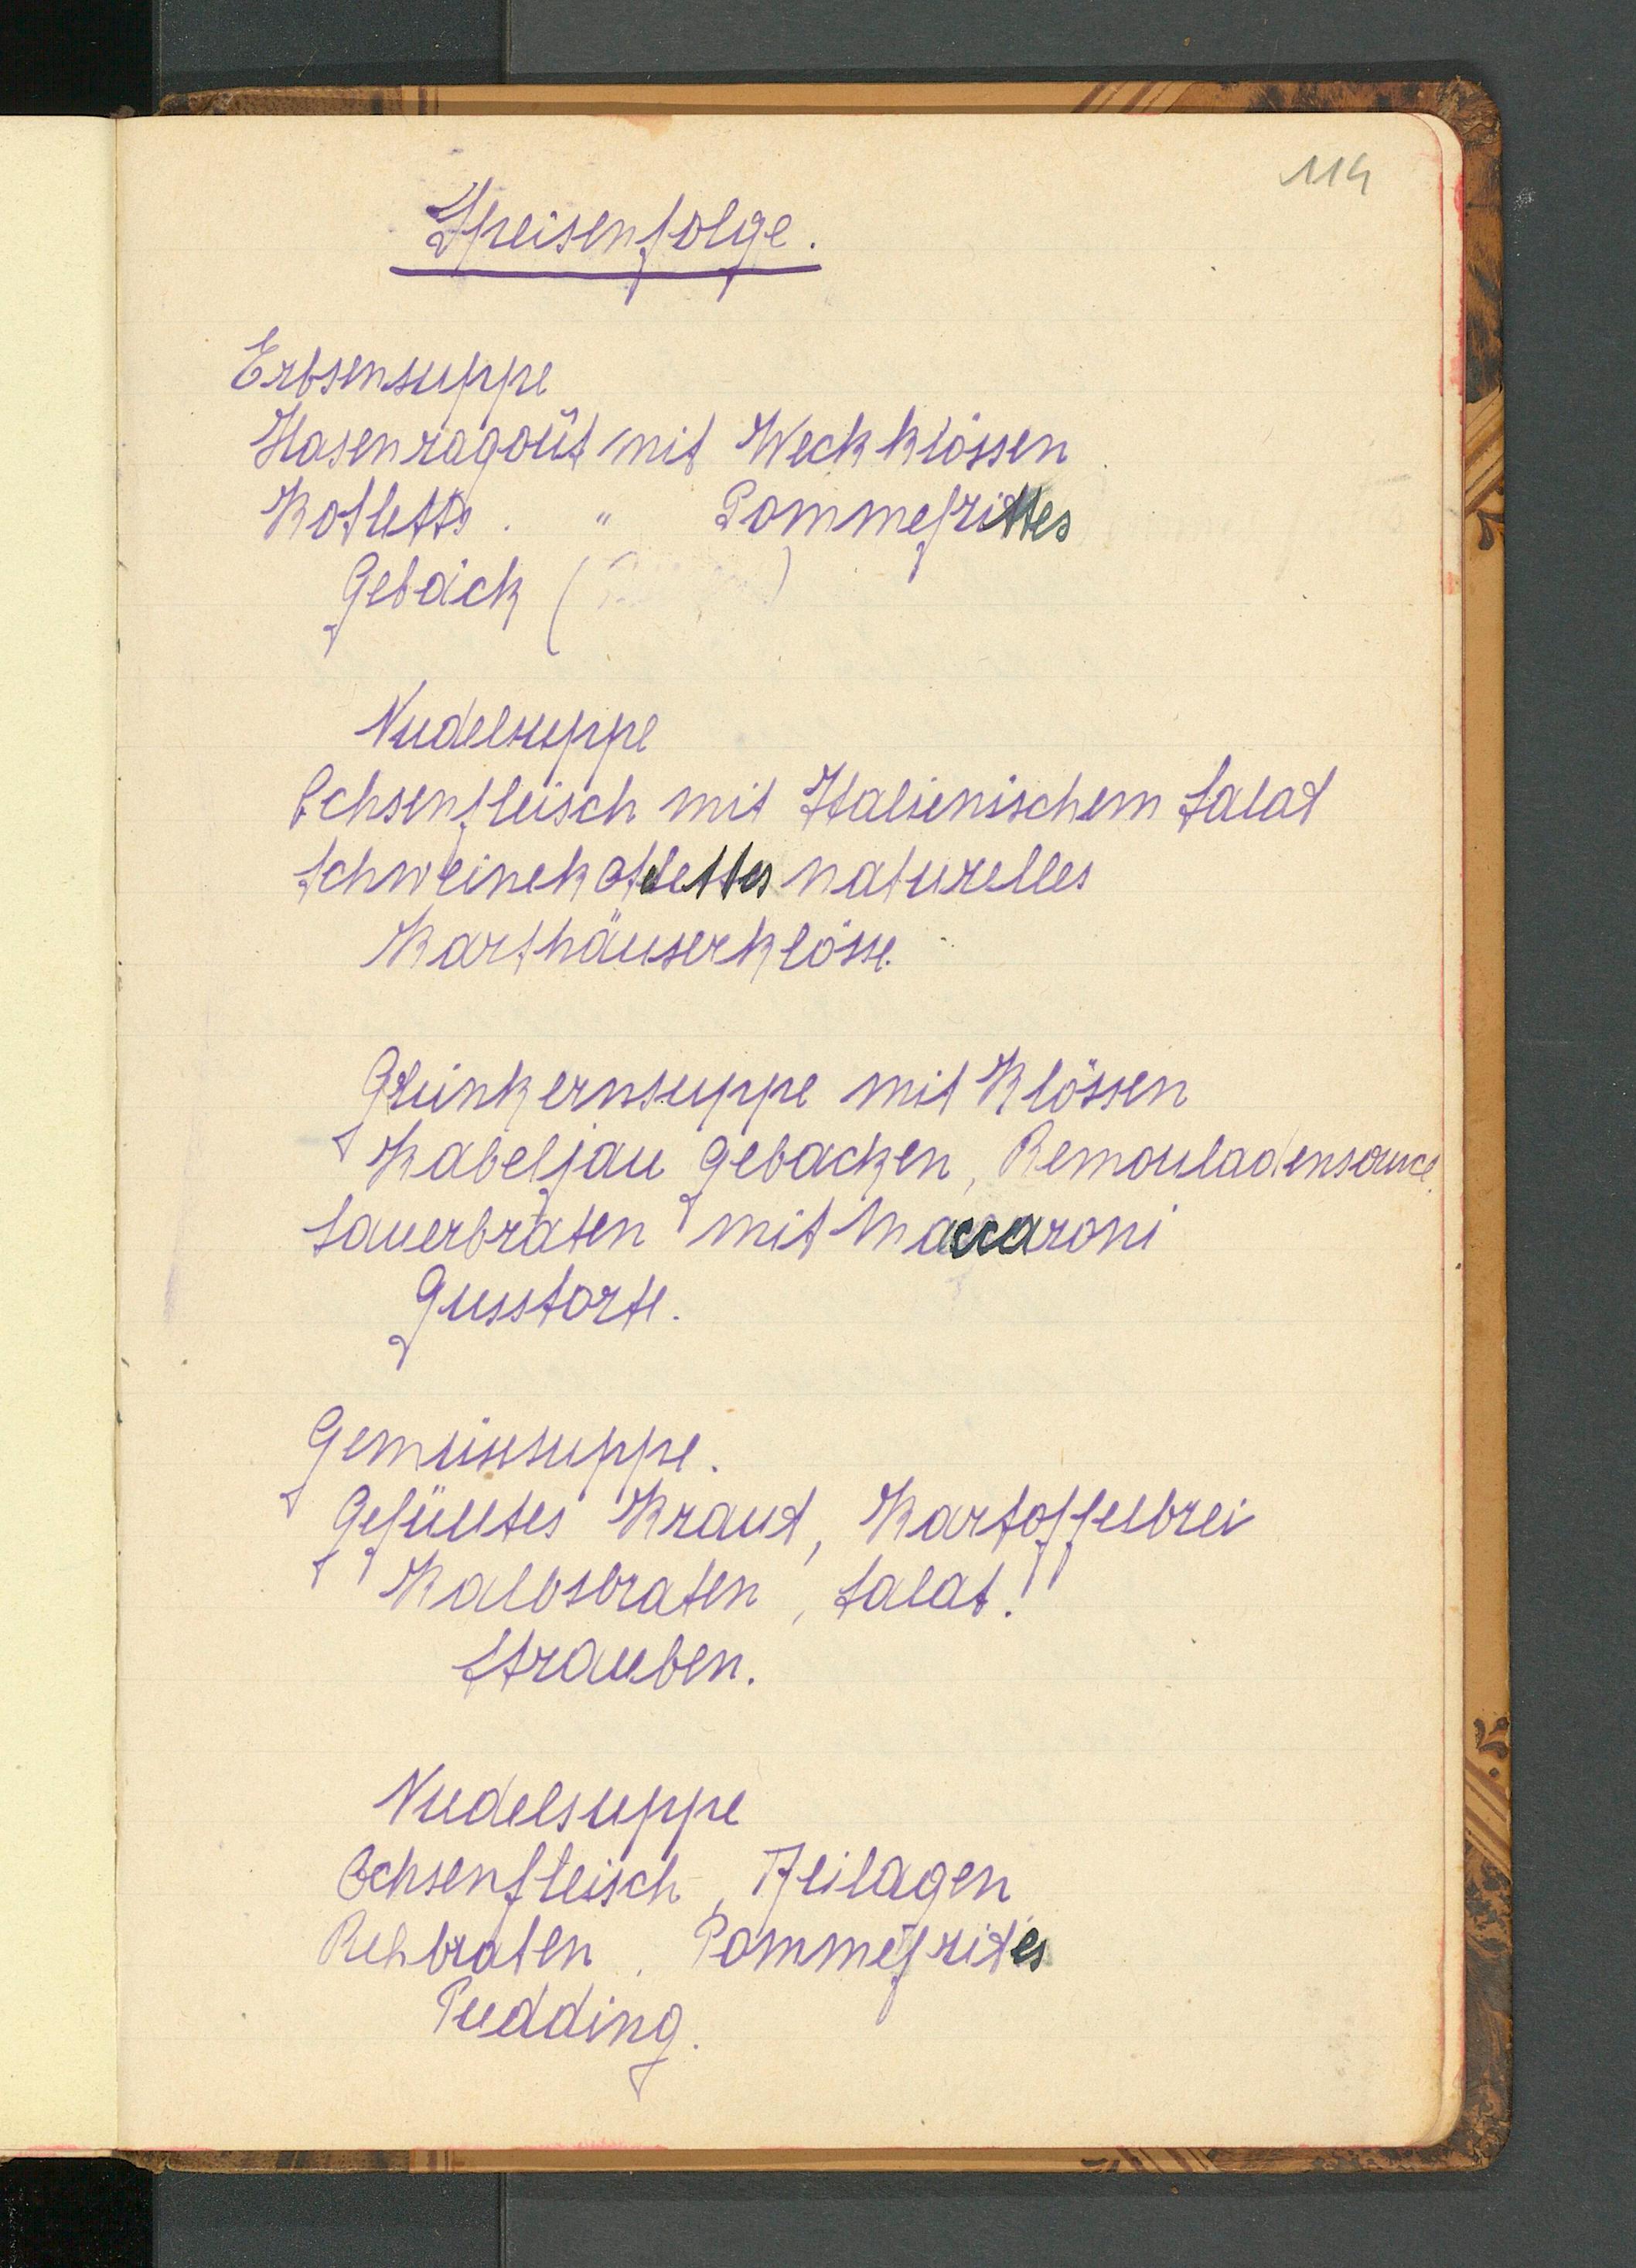 114
Speisenfolge.
Erbsensuppe
Hasenragoût mit Weckklössen
Kotletts. " Pommefrittes
Gebäck ( )
Nudelsuppe
Ochsenfleisch mit Italienischem Salat
Schweinekotelettes naturelles
Karthäuserklösse.
Grünkernsuppe mit Klössen
Kabeljau gebacken, Remouladensauce.
Sauerbraten mit Maccaroni
Gusstorte.
Gemüsesuppe.
Gefülltes Kraut, Kartoffelbrei
Kalbsbraten, Salat.
Strauben.
Nudelsuppe
Ochsenfleisch, Beilagen
Rehbraten. Pommefrites
Pudding.